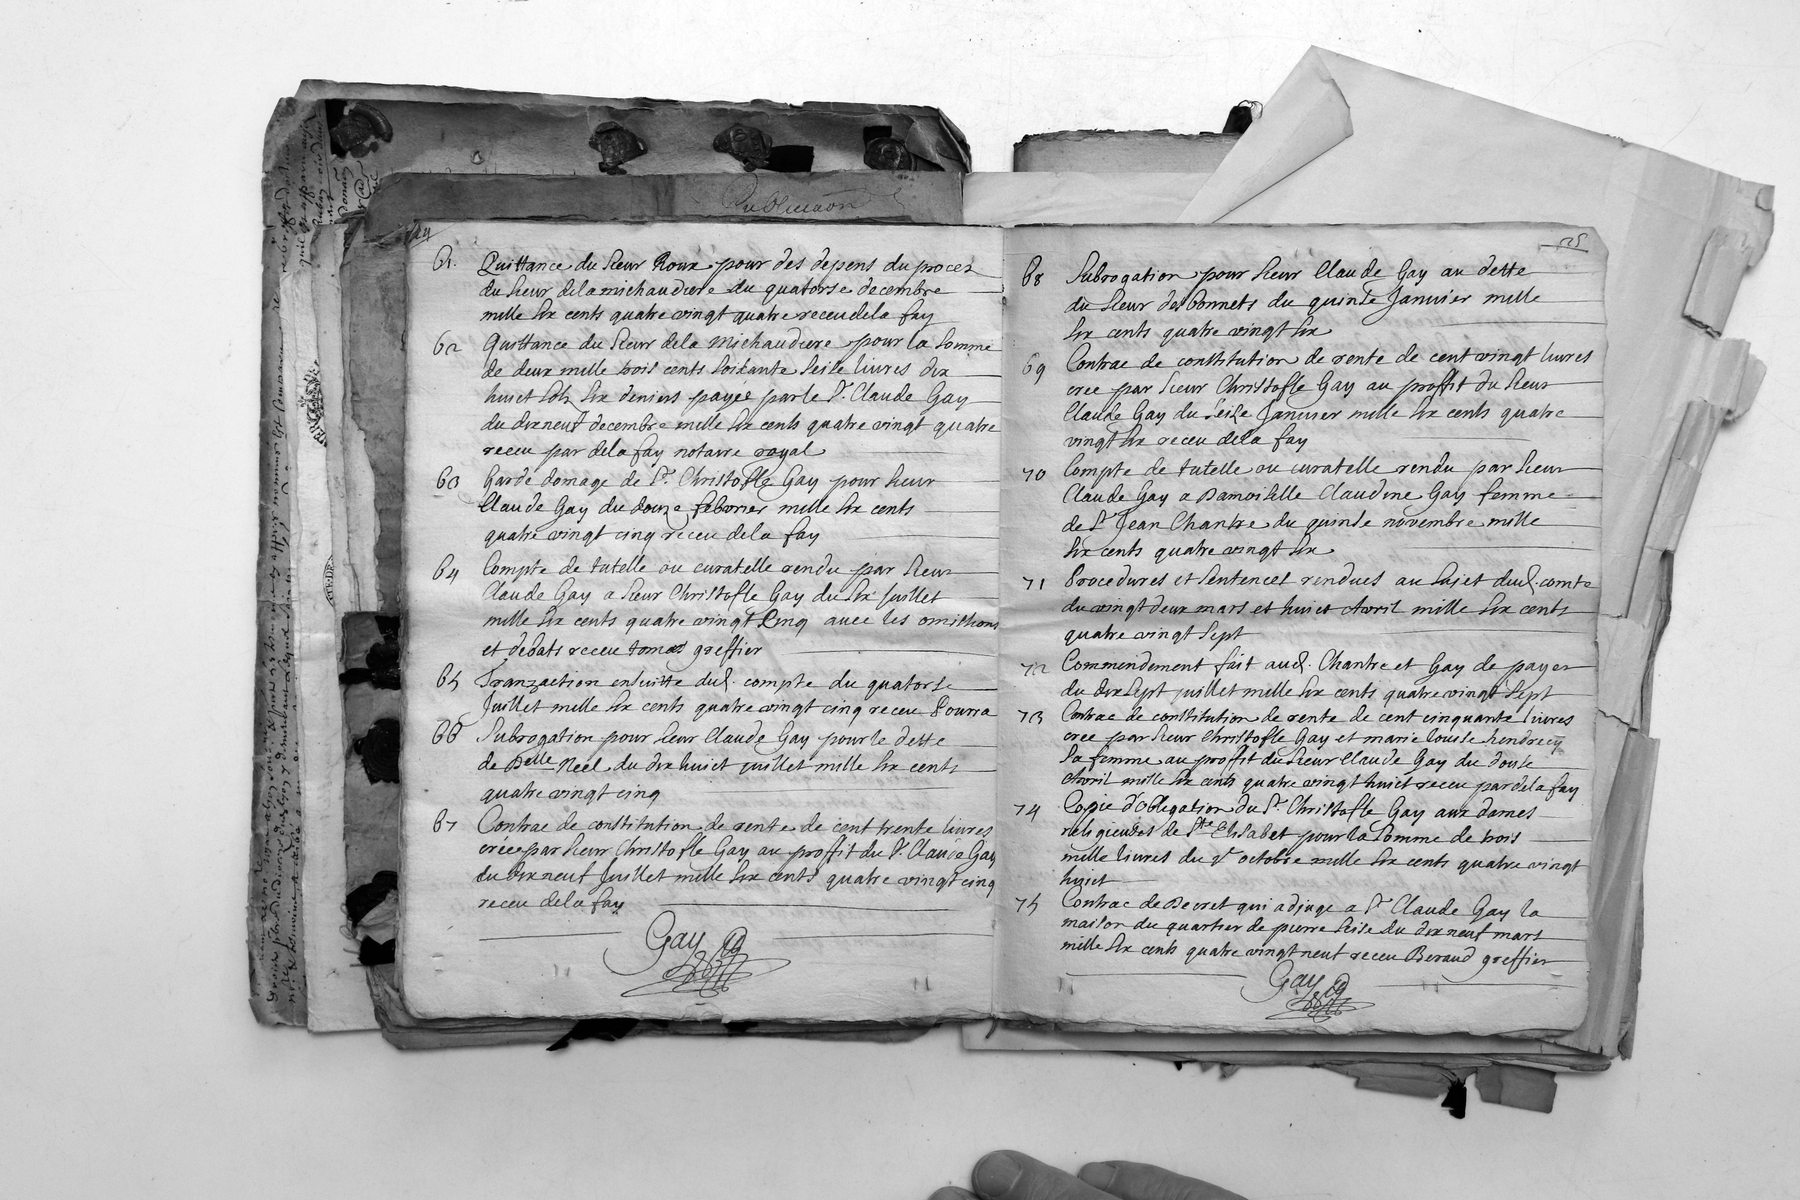 Publicaon
124
61. Quittance du sieur Roux pour des depens du proces
du sieur delamichaudiere du quatorse decembre
mille six cents quatre vingt quatre receu dela fay
62 Quittance du sieur dela michaudiere pour la somme
de deux mille trois cents soixante seise livres dix
huict sols six deniers payée par le Sr. Claude Gay
du dix neuf decembre mille six cents quatre vingt quatre
receu par dela fay notaire royal
63 Garde domage de Sr. Christofle Gay pour sieur
Claude Gay du douze febvrier mille six cents
quatre vingt cinq receu dela fay
64 Compte de tutelle ou curatelle rendu par sieur
Claude Gay a sieur Christofle Gay du six juillet
mille six cents quatre vingt Cinq avec les omissions
et debats receu greffier
65 Tranzaction ensuitte dud. compte du quatorse
Juillet mille six cents quatre vingt cinq receu Bourra
66 Subrogation pour sieur Claude Gay pour le dette
de Delle Néel du dix huict juillet mille six cents
quatre vingt cinq
67 Contrac de constitution de rente de cent trente livres
créee par sieur Christofle Gay au proffit du Sr. Claude Gay
du dix neuf Juillet mille six cents quatre vingt cinq
receu dela fay
Gay
125
68 Subrogation pour sieur Claude Gay au dette
du sieur desbonnets du quinse Janvier mille
six cents quatre vingt six
69 Contrac de constitution de rente de cent vingt livres
cree par sieur Christofle Gay au proffit du sieur
Claude Gay du seise Janvier mille six cents quatre
vingt six receu dela fay
70 Compte de tutelle ou curatelle rendu par sieur
Claude Gay a Damoiselle Claudine Gay femme
de Sr Jean Chantre du quinse novembre mille
six cents quatre vingt six
71 Procedures et sentences rendues au sujet dud. comte
du vingt deux mars et huict Avril mille six cents
quatre vingt sept
72 Commendement fait aud. Chantre et Gay de payer
du dix sept juillet mille six cents quatre vingt sept
73 Contrac de constitution de rente de cent cinquante livres
cree par sieur Christofle Gay et marie louise hendrecy
sa femme au proffit du sieur Claude Gay du douse
Avril mille six cents quatre vingt huict receu par dela fay
74 Copie d'obligation du Sr. Christofle Gay aux dames
religieuses de Ste Elisabet pour la somme de trois
mille livres du octobre mille six cents quatre vingt
huict
75 Contrac de Decret qui adjuge a Sr Claude Gay la
maison du quartier de pierre sise du dix neuf mars
mille six cents quatre vingt neuf receu Beraud greffier
Gay